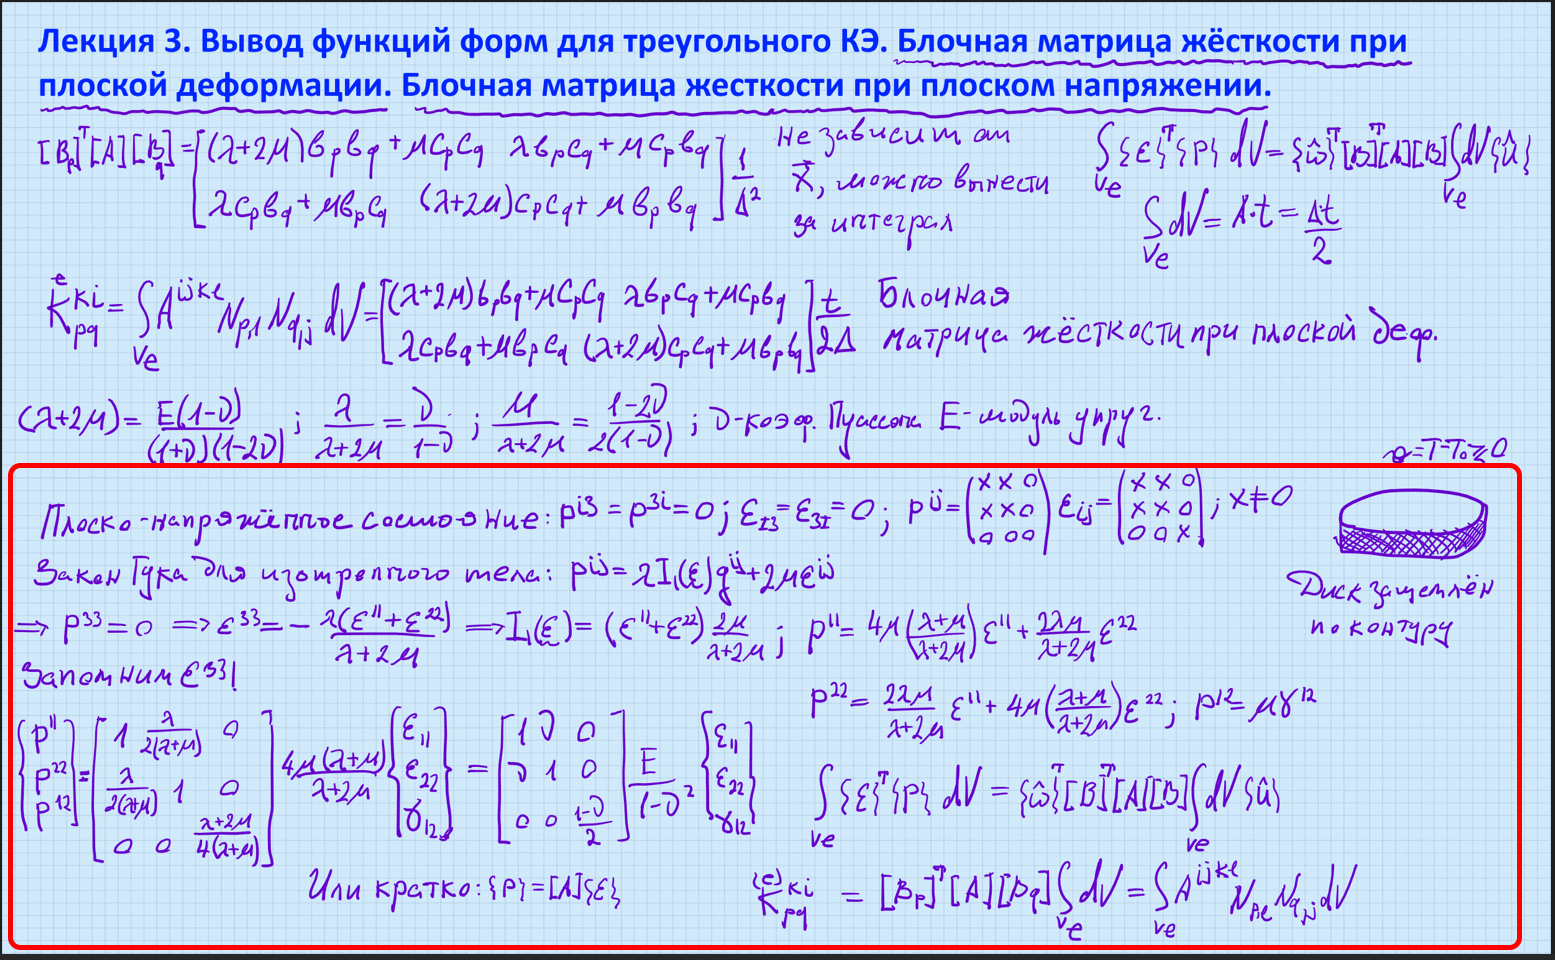 Лекция 3. Вывод функций форм для треугольного КЭ. Блочная матрица жёсткости при
плоской деформации. Блочная матрица жесткости при плоском напряжении.
[Bp]ᵀ[A][Bq] = [(λ+2μ)bpbq + μcpcq   λbpcq + μcpbq
λcpbq + μbpcq   (λ+2μ)cpcq + μbpbq] 1/Δ²
Не зависит от
x⃗, можно вынести
за интеграл
∫Ve {ε}ᵀ{P} dV = {ω̂}ᵀ[B]ᵀ[A][B] ∫Ve dV {û}
∫Ve dV = A·t = Δt/2
ᵉKpqᵏⁱ = ∫Ve Aⁱʲᵏˡ Np,l Nq,j dV = [(λ+2μ)bpbq + μcpcq   λbpcq + μcpbq
λcpbq + μbpcq   (λ+2μ)cpcq + μbpbq] t/2Δ
Блочная
матрица жёсткости при плоской деф.
(λ+2μ) = E(1-ν)/(1+ν)(1-2ν) ; λ/(λ+2μ) = ν/(1-ν) ; μ/(λ+2μ) = (1-2ν)/2(1-ν) ; ν-коэф. Пуассона E-модуль упруг.
Плоско-напряжённое состояние: Pⁱ³ = P³ⁱ = 0 ; εI3 = ε3I = 0 ; Pⁱʲ = (x x 0
x x 0
0 0 0) εij = (x x 0
x x 0
0 0 x) ; x≠0
Закон Гука для изотропного тела: Pⁱʲ = λI₁(ε)gⁱʲ + 2μεⁱʲ
Диск защемлён
по контуру
⇒ P³³ = 0 ⇒ ε³³ = - λ(ε¹¹+ε²²)/(λ+2μ) ⇒ I₁(ε) = (ε¹¹+ε²²) 2μ/(λ+2μ) ; P¹¹ = 4μ((λ+μ)/(λ+2μ))ε¹¹ + 2λμ/(λ+2μ) ε²²
Запомним ε³³!
P²² = 2λμ/(λ+2μ) ε¹¹ + 4μ((λ+μ)/(λ+2μ))ε²² ; P¹² = μγ¹²
{P¹¹
P²²
P¹²} = [1 λ/2(λ+μ) 0
λ/2(λ+μ) 1 0
0 0 (λ+2μ)/4(λ+μ)] 4μ(λ+μ)/(λ+2μ) {ε₁₁
ε₂₂
γ₁₂} = [1 ν 0
ν 1 0
0 0 (1-ν)/2] E/(1-ν²) {ε₁₁
ε₂₂
γ₁₂}
∫Ve {ε}ᵀ{P} dV = {ω̂}ᵀ[B]ᵀ[A][B] ∫Ve dV {û}
Или кратко: {P} = [A]{ε}
⁽ᵉ⁾Kpqᵏⁱ = [Bp]ᵀ[A][Bq] ∫Ve dV = ∫Ve Aⁱʲᵏˡ Np,l Nq,j dV